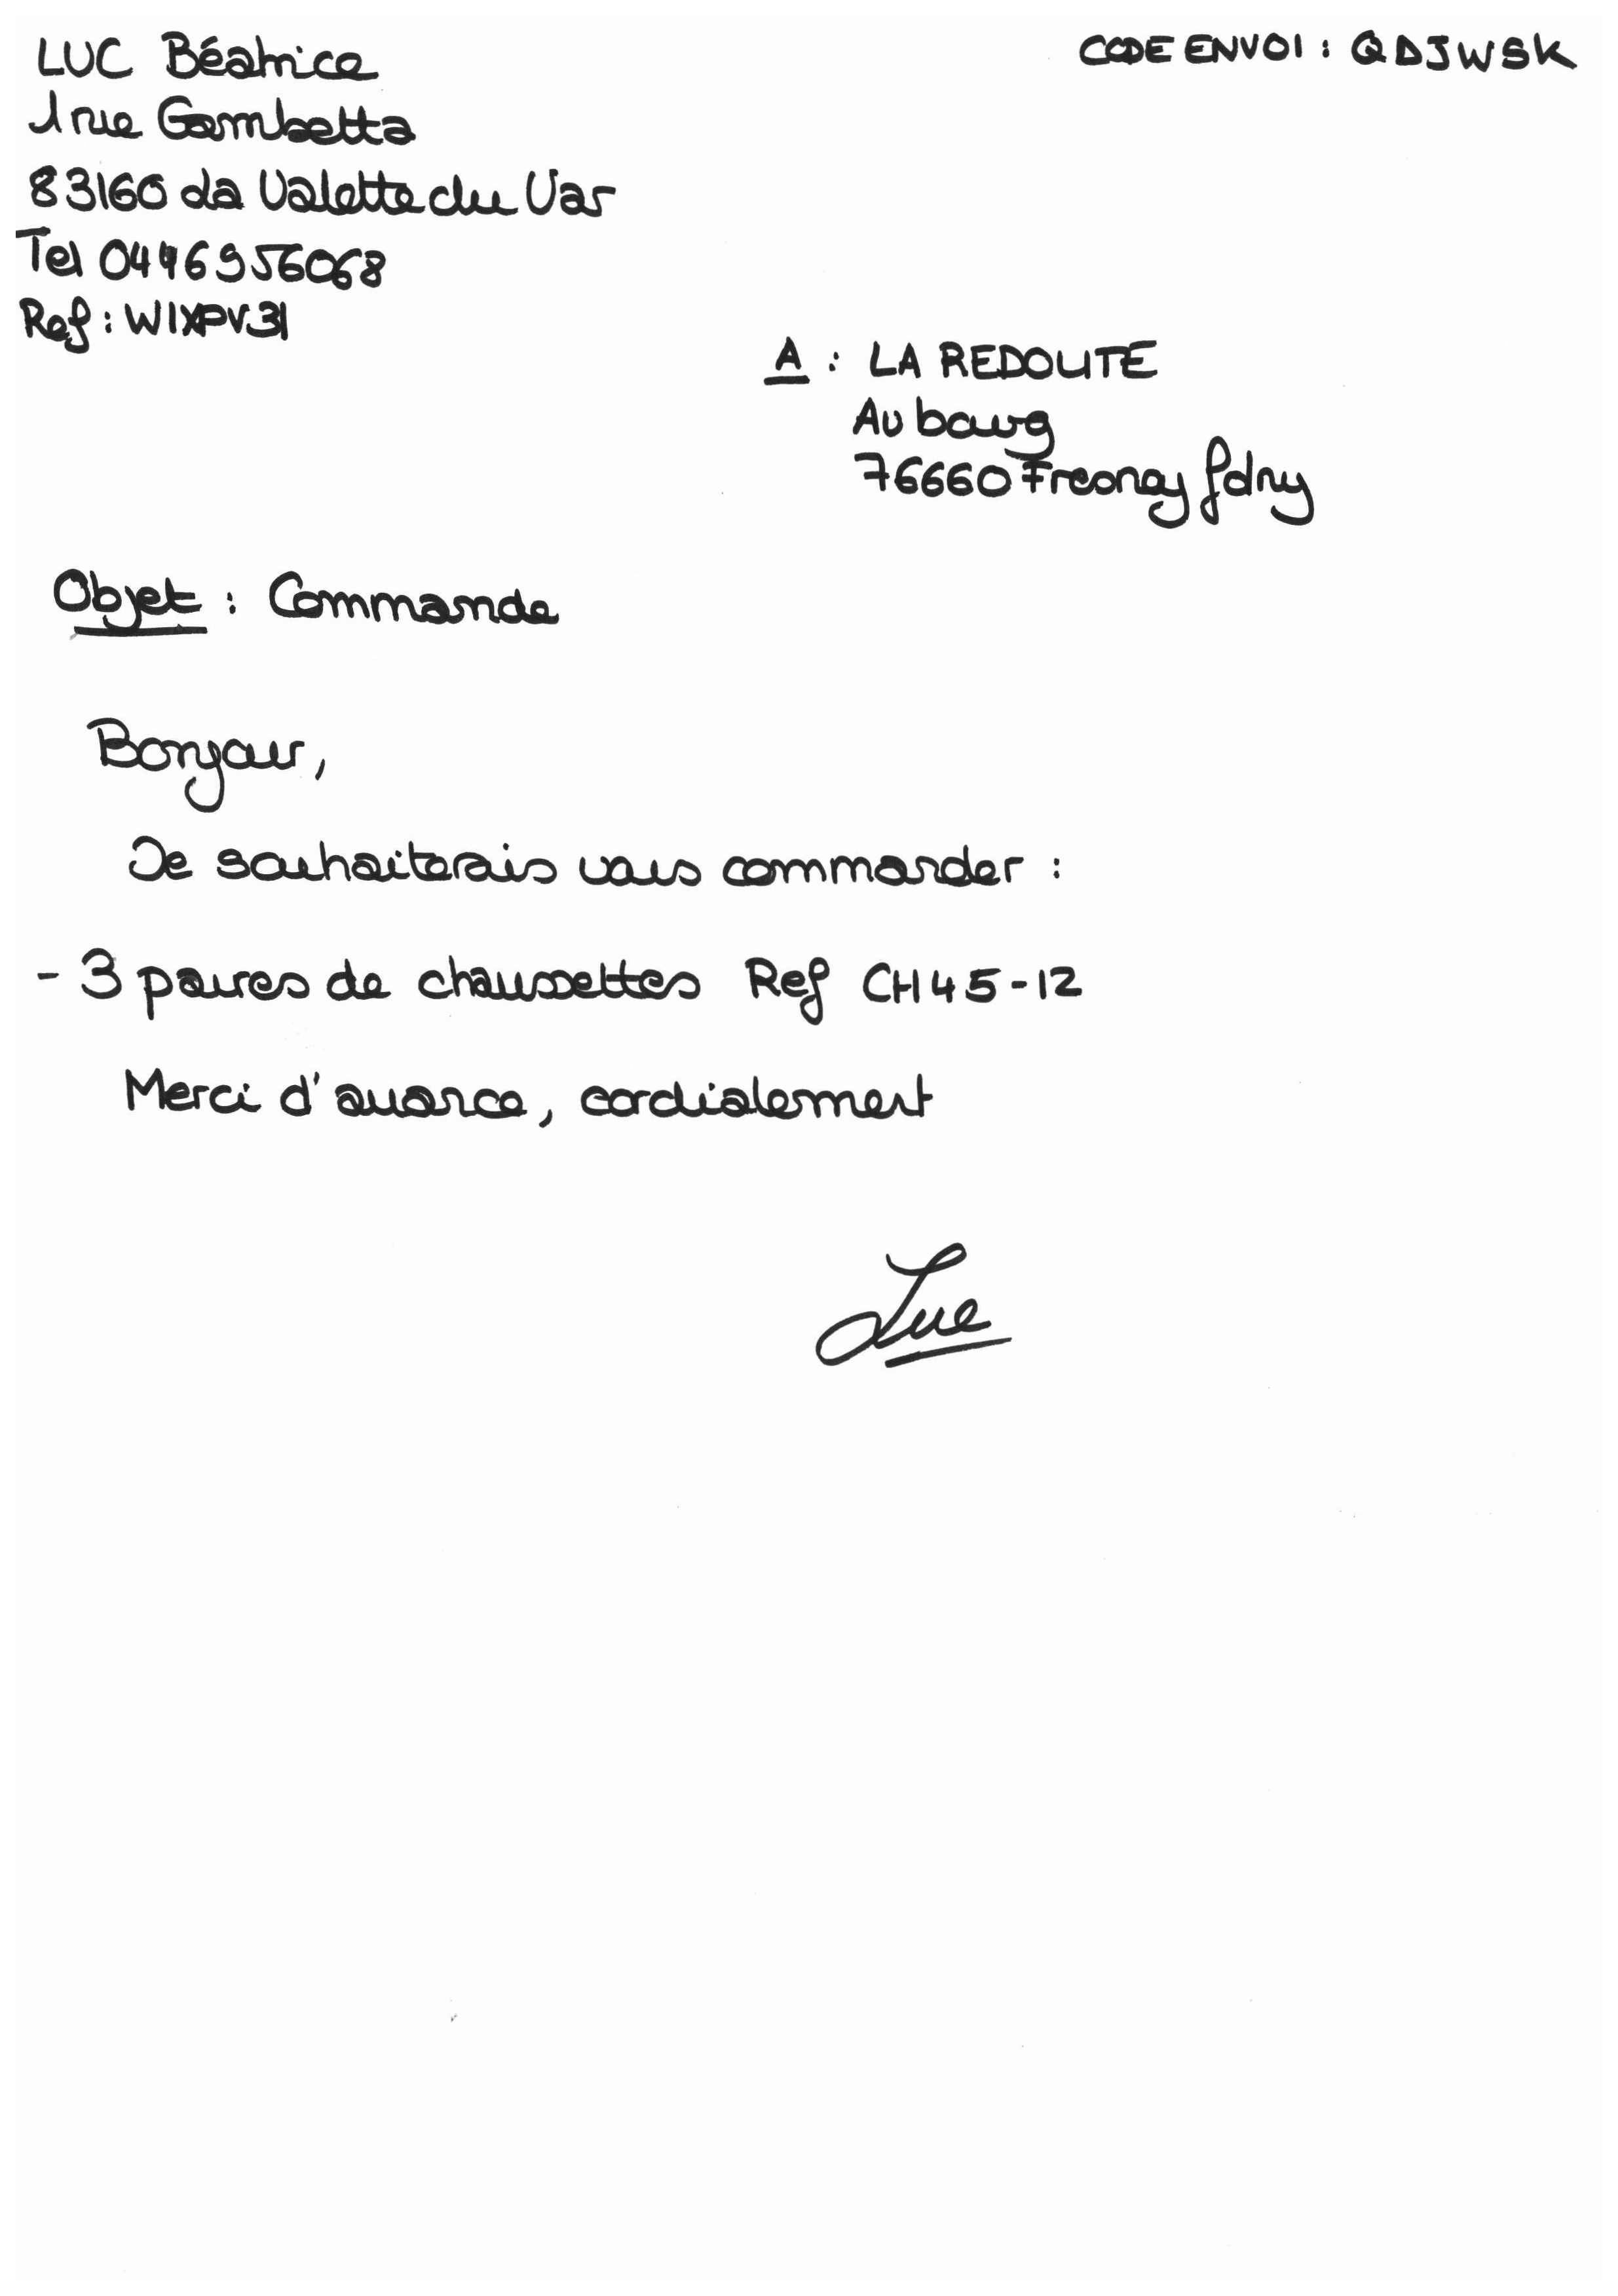 LUC Béatrice
CODE ENVOI : QDJWSK
1 rue Gambetta
83160 La Valette du Var
Tel 0446956068
Ref : WIXPV31
A : LA REDOUTE
Au bourg
76660 Fresnay
Objet : Commande
Bonjour,
Je souhaiterais vous commander :
- 3 paires de chaussettes Ref CH45-12
Merci d'avance, cordialement
Luc